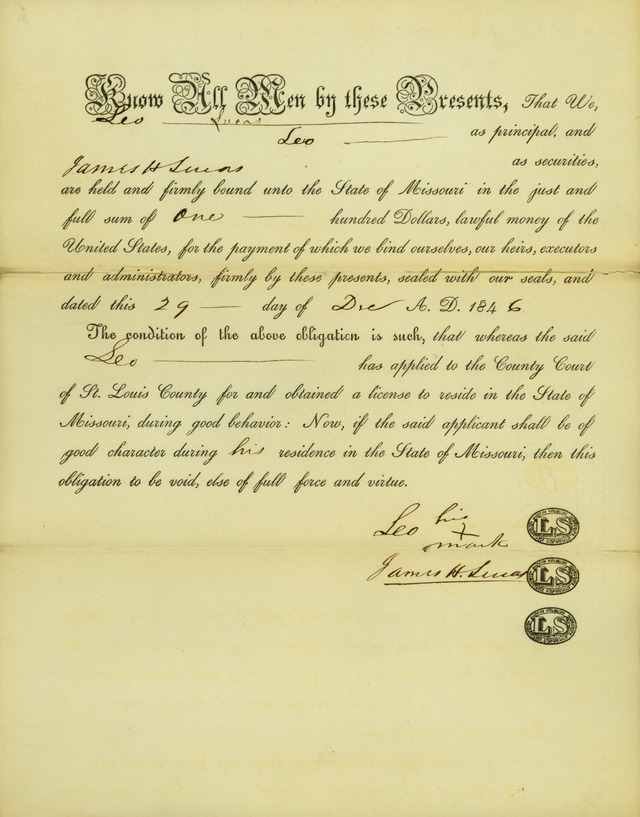 Know All Men by these Presents, That We,
Leo Lucas
Leo as principal, and
James H Lucas as securities,
are held and firmly bound unto the State of Missouri in the just and
full sum of One hundred Dollars, lawful money of the
United States, for the payment of which we bind ourselves, our heirs, executors
and administrators, firmly by these presents, sealed with our seals, and
dated this 29 day of Dec A. D. 1846
The condition of the above obligation is such, that whereas the said
Leo has applied to the County Court
of St. Louis County for and obtained a license to reside in the State of
Missouri, during good behavior: Now, if the said applicant shall be of
good character during his residence in the State of Missouri, then this
obligation to be void, else of full force and virtue.
Leo his
x
mark LS
James H. Lucas LS
LS